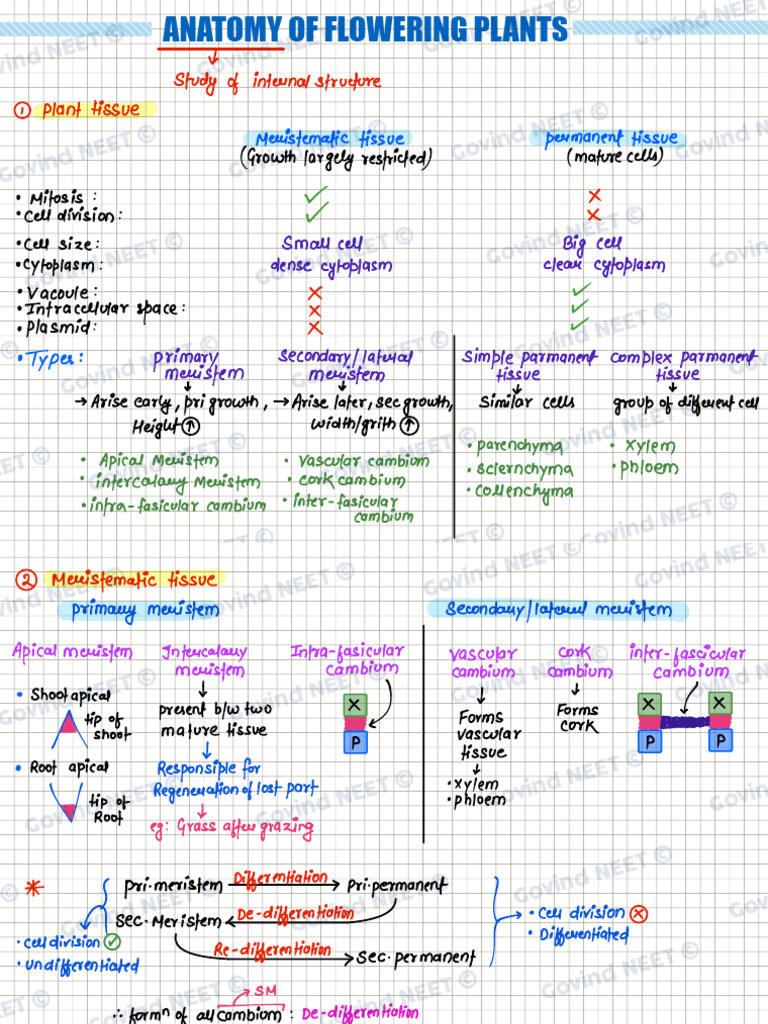 ANATOMY OF FLOWERING PLANTS
Study of internal structure
① Plant tissue
Meristematic tissue
(Growth largely restricted)
permanent tissue
(mature cells)
• Mitosis : ✓ ×
• Cell division: ✓ ×
• Cell size: Small cell Big cell
• Cytoplasm: dense cytoplasm clear cytoplasm
• Vacoule : × ✓
• Intracellular space: × ✓
• Plasmid: × ✓
• Types:
primary
meristem
→ Arise early, pri growth,
Height ↑
• Apical Meristem
• intercalary Meristem
• intra-fasicular cambium
Secondary/lateral
meristem
→ Arise later, sec growth,
width/grith ↑
• Vascular cambium
• cork cambium
• inter-fasicular
cambium
Simple parmanent
tissue
similar cells
• parenchyma
• sclernchyma
• collenchyma
complex parmanent
tissue
group of different cell
• Xylem
• phloem
② Meristematic tissue
primary meristem
Apical meristem
• Shoot apical
tip of
shoot
• Root apical
tip of
Root
Intercalary
meristem
present b/w two
mature tissue
Responsible for
Regeneration of lost part
eg: Grass after grazing
Intra-fasicular
cambium
X
P
Secondary/lateral meristem
vascular
cambium
Forms
vascular
tissue
• xylem
• phloem
cork
cambium
Forms
cork
inter-fascicular
cambium
X X
P P
* pri.meristem Differentiation → pri.permanent
Sec.Meristem ← De-differentiation
Re-differentiation → Sec.permanent
• cell division ✓
• undifferentiated
• cell division ×
• Differentiated
SM
∴ formⁿ of all cambium : De-differentiation
Govind NEET ©